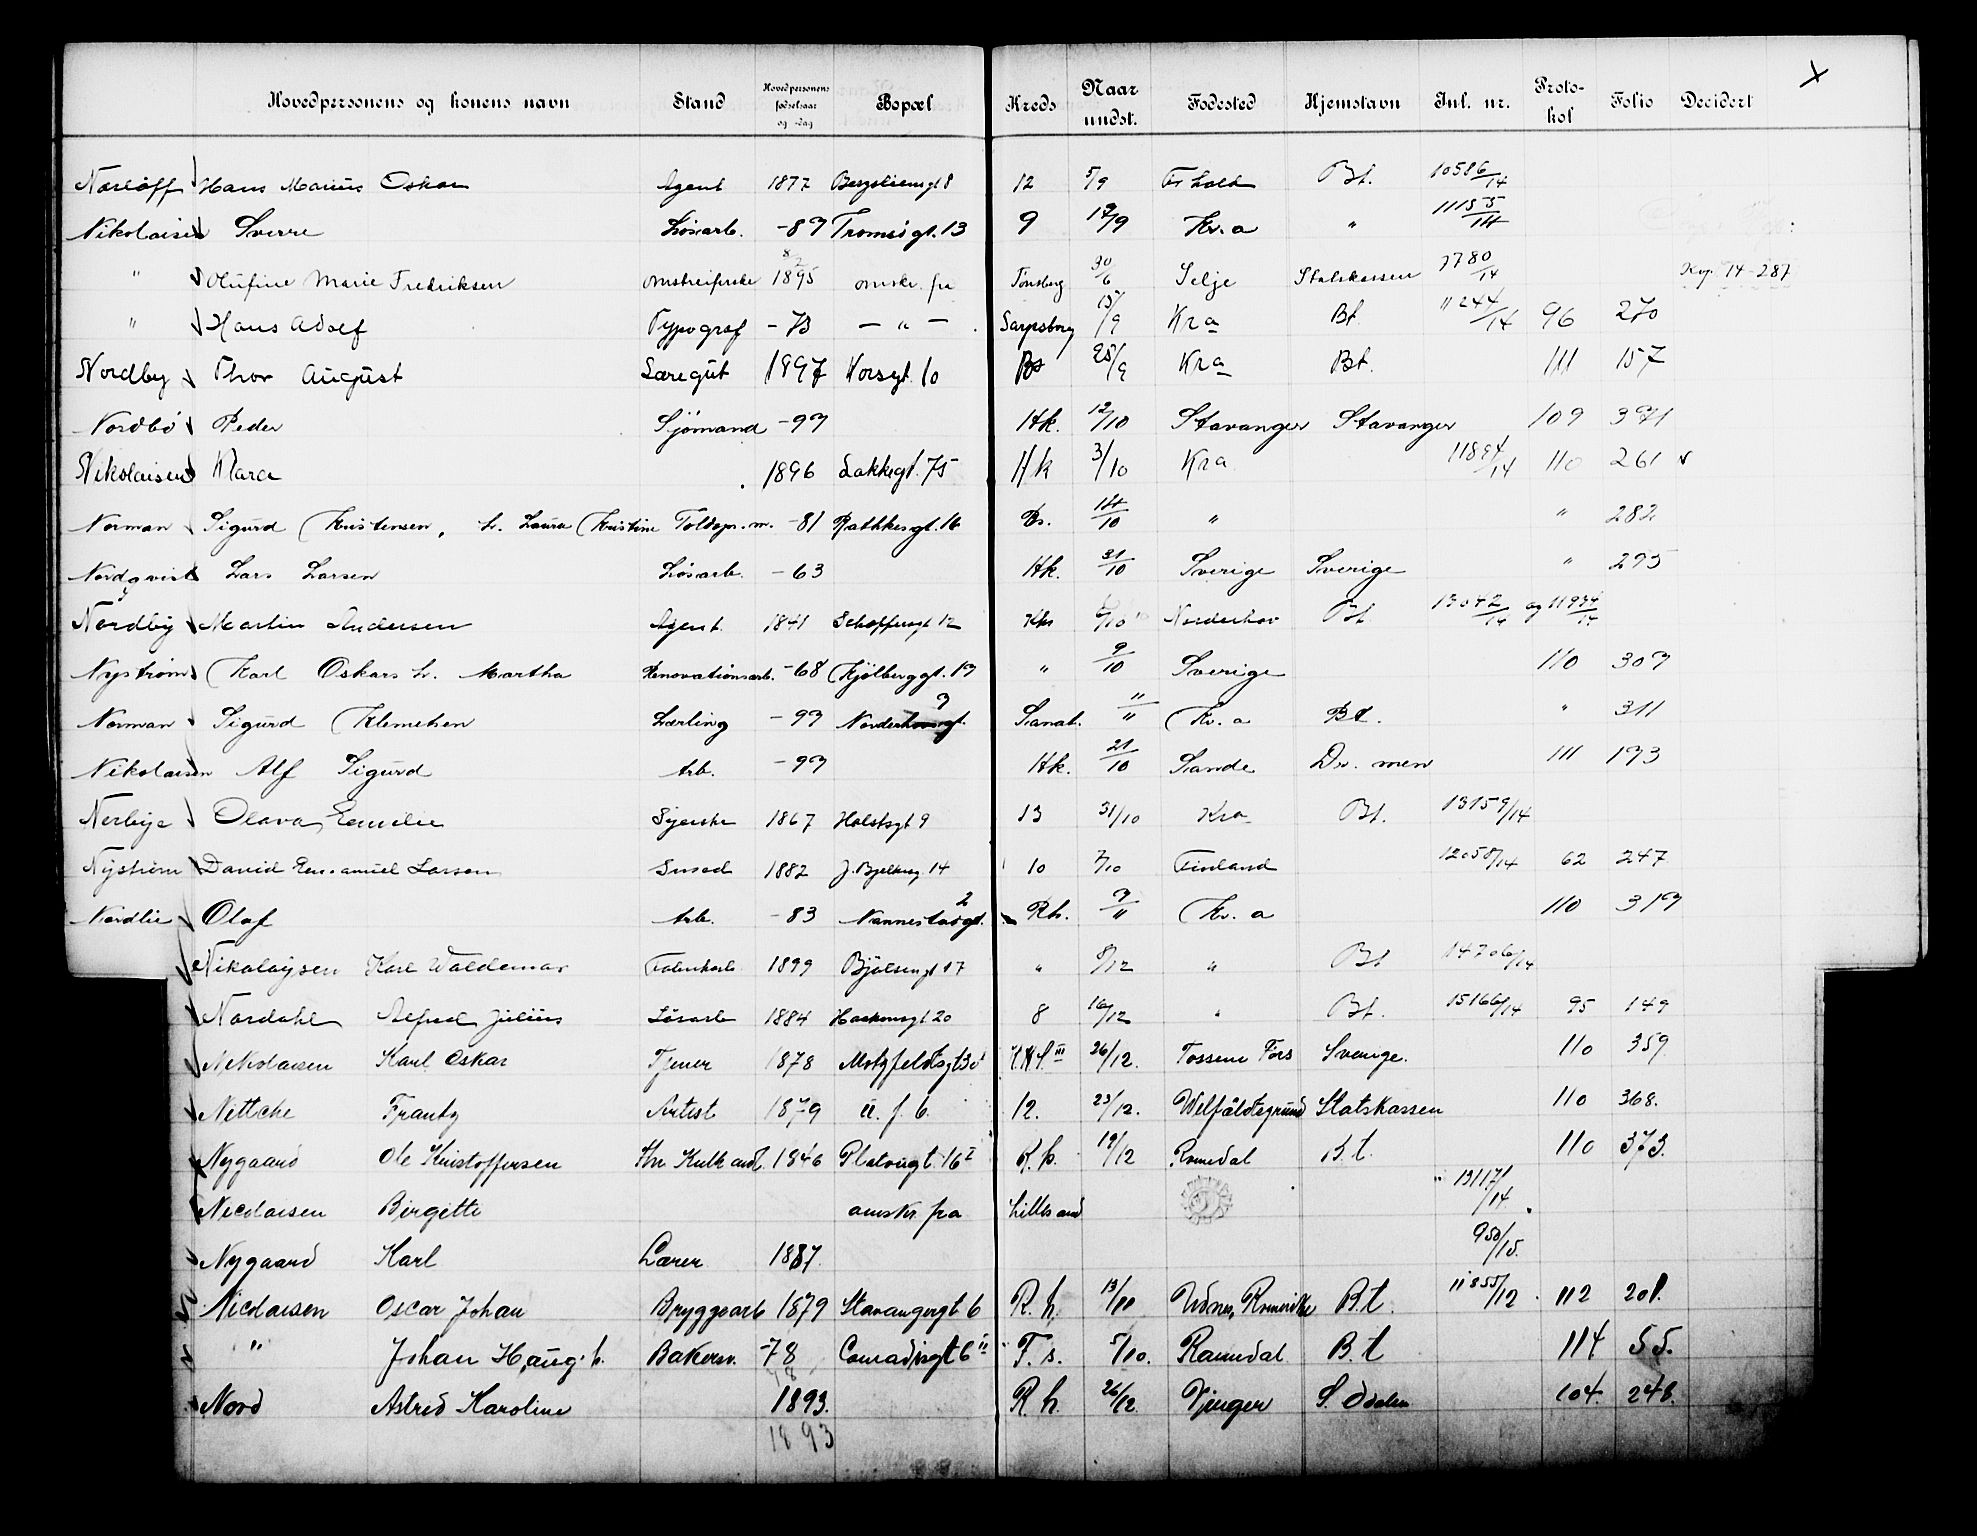 Hovedpersonens og konens navn Stand Hovedpersonens fødselsaar og -dag Bopæl Kreds Naar undst. Fødested Hjemstavn Inl. nr. Proto-kol Folio Decidert
Hans Marius Oskar Agent 1877 8 12 5/9 Fr.hald Bt. 10586/14
Nikolaisen Sverre Løsarb. -89 Tromsøgt. 13 9 Kr.a " 11155/14
" Olufine Marie Fredriksen omstreiferske 1895 omskr. fra Tønsberg 30/6 Selje Statskassen 7780/14 Kop. 14-287
" Hans Adolf Typograf -73 - " - Sarpsborg Kra Bt. 11244/14 96 270
Nordby Thor August Læregut 1897 Korsgt. 10 Bs 25/9 Kra Bt. 111 157
Nordbø Peder Sjømand -99 Hk. 12/10 Stavanger Stavanger 109 391
Nikolaisen Klara 1896 Lakkegt. 75 Hk 3/10 Kra 11894/14 110 261
Norman Sigurd Kristensen, h. Laura Kristine Toldop.m. -81 Rathkesgt. 16 Bs. 14/10 " " 282
Nordqvist Lars Larsen Løsarb. -63 Hk. 31/10 Sverige Sverige " 295
Nordby Martin Andersen Agent. 1841 Schoffersgt 12 Khs Norderhov Bt. 13042/14 og 11934/14
Nystrøm Karl Oskar h. Martha Renovationsarb. -68 Kjølberggt. 19 " 9/10 Sverige 110 309
Norman Sigurd Klemetsen Lærling -99 Norderhovsgt. 9 Sanat. " Kr.a Bt. " 311
Nikolaisen Alf Sigurd Arb. -99 Hk. 21/10 Sande Dr.men 111 193
Nerbye Olava Emelie Syerske 1867 Holstsgt 9 13 31/10 Kra Bt. 13159/14
Nystrøm David Emanuel Larsen Smed 1882 J. Bjelkesg 14 10 7/10 Finland 12058/14 62 247
Nordlie Olaf Arb. -83 Nannestadgt. 2 Rh. 9/11 Kr.a 110 319
Nikolaysen Karl Waldemar Fabrikarb. 1899 Bjølsengt 17 " 8/12 " Bt 14706/14
Nordahl Alfred Julius Løsarb 1884 Haakonsgt 20 8 16/12 " Bt. 15166/14 95 149
Nikolaisen Karl Oskar Tjener 1878 Motzfeldtsgt 30 III 26/12. Tossene Førs Sverige. 110 359
Nittche Frantz Artist 1879 u. f. b. 12. 23/12. Welfåldtsgrund Statskassen 110 368.
Nygaard Ole Kristoffersen 1846 Platougt. 16 I R.h. 19/12 Romedal B.t. 110 373.
Nicolaisen Birgitte omskr. fra Lillesand 13117/14.
Nygaard Karl Lærer 1887. 950/15.
Nicolaisen Oscar Johan Bryggearb 1879 Stavangergt 6 R.h. Udnes, Romerike B.t. 11855/12. 112 201.
" Johan H. aug. h. Bakersv. -78 Conradisgt 6 II T.s. 5/10. Ramdal B.t 114 55.
Nord Astrid Karoline 1893. R.h. 26/12 Vinger S. Odalen 104. 248.
1893